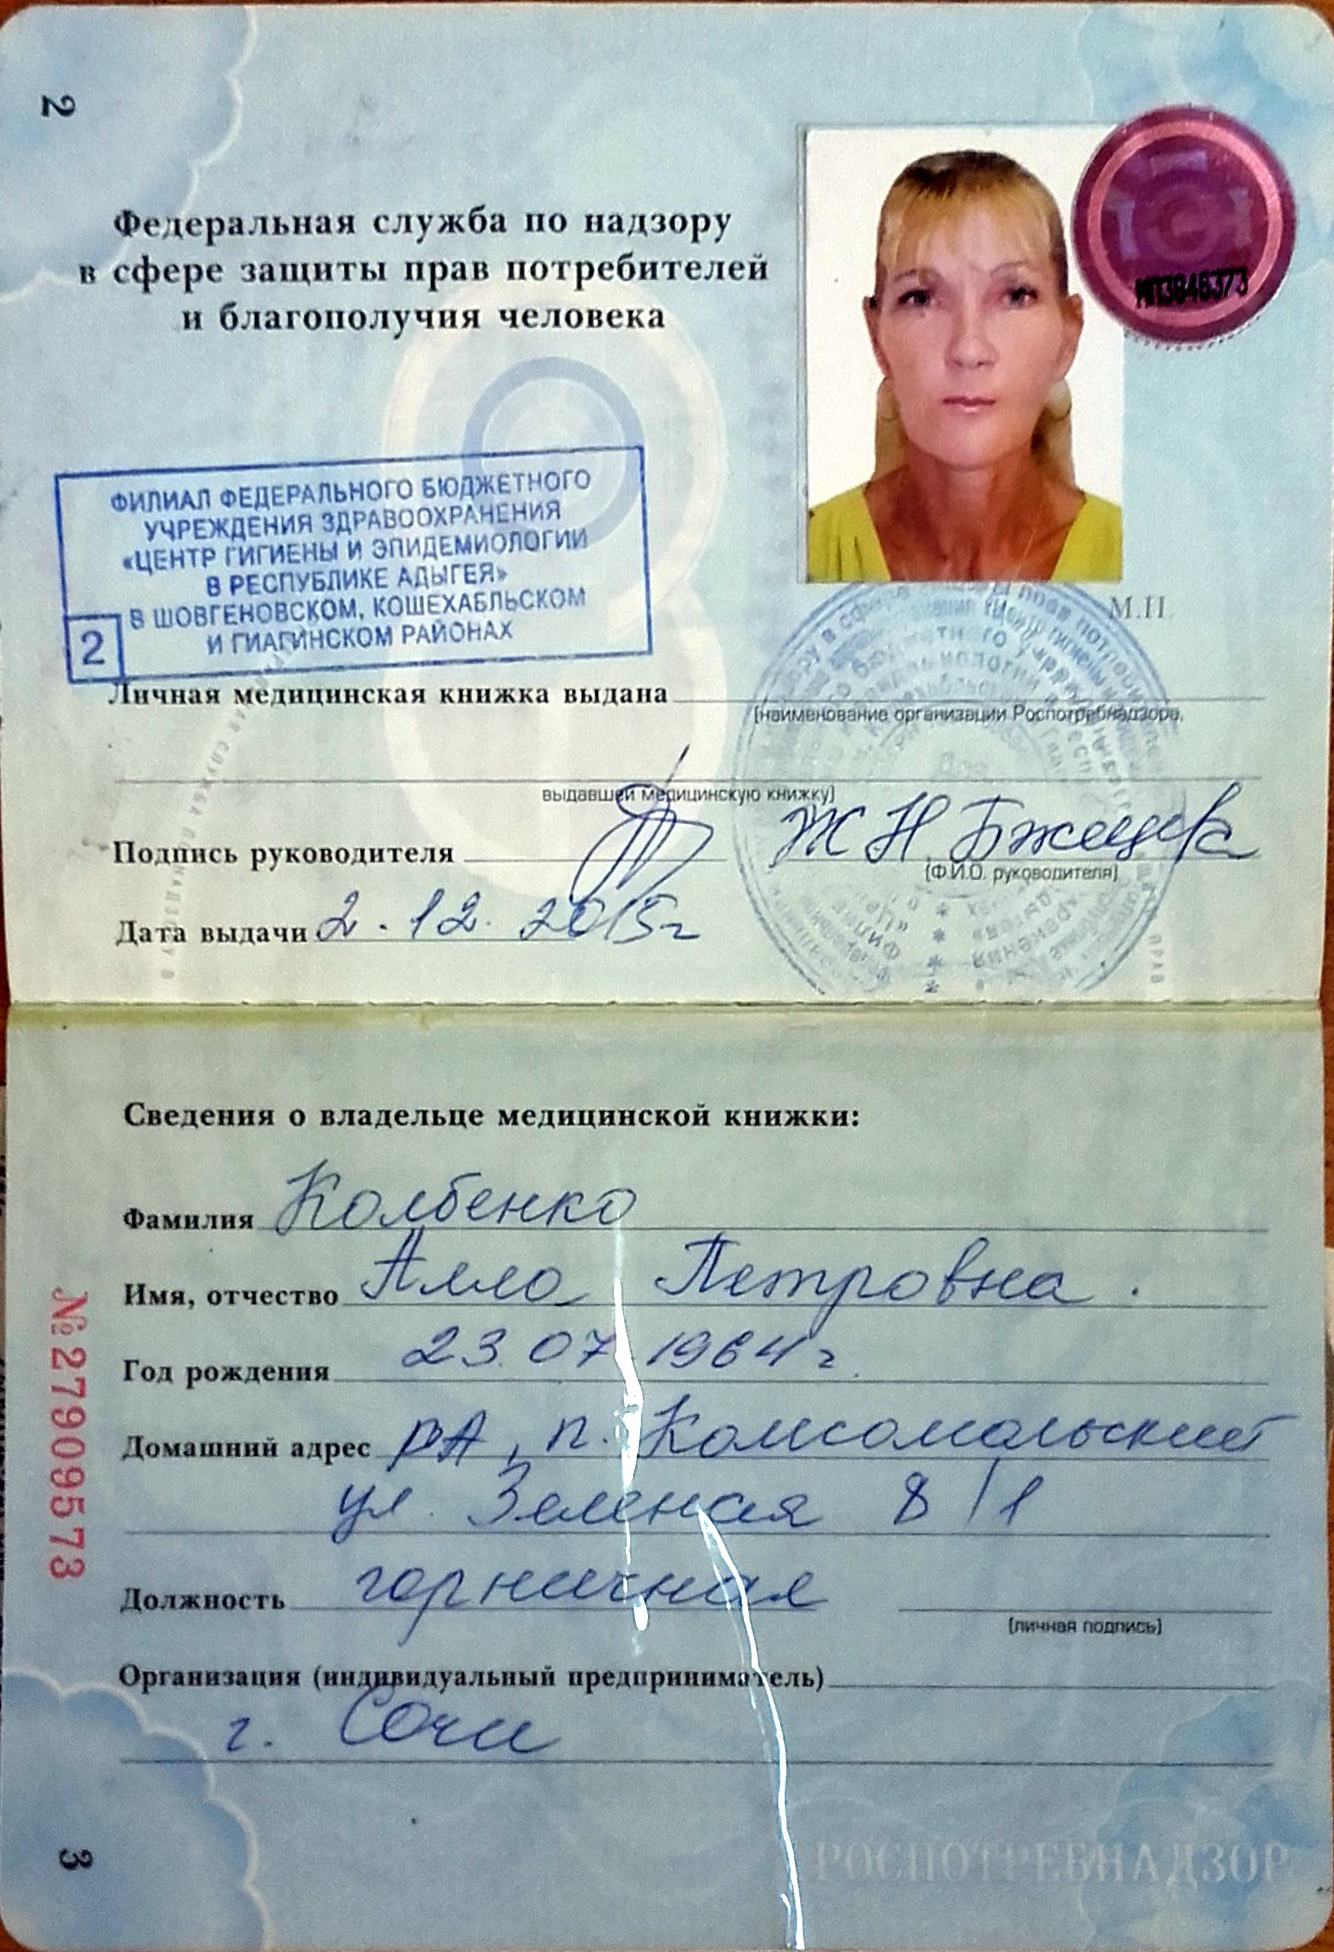 2
Федеральная служба по надзору
в сфере защиты прав потребителей
и благополучия человека
ИП3646373
ФИЛИАЛ ФЕДЕРАЛЬНОГО БЮДЖЕТНОГО
УЧРЕЖДЕНИЯ ЗДРАВООХРАНЕНИЯ
«ЦЕНТР ГИГИЕНЫ И ЭПИДЕМИОЛОГИИ
В РЕСПУБЛИКЕ АДЫГЕЯ»
В ШОВГЕНОВСКОМ, КОШЕХАБЛЬСКОМ
И ГИАГИНСКОМ РАЙОНАХ
2
М.П.
Личная медицинская книжка выдана
(наименование организации Роспотребнадзора,
выдавшей медицинскую книжку)
Подпись руководителя Ж Н
(Ф.И.О. руководителя)
Дата выдачи 2.12.2015г
Сведения о владельце медицинской книжки:
Фамилия Колбенко
Имя, отчество Алла Петровна.
Год рождения 23.07.1964г
Домашний адрес РА, п. Комсомольский
ул. Зеленая 8/1
Должность горничная
(личная подпись)
Организация (индивидуальный предприниматель)
г. Сочи
№ 27909573
3
РОСПОТРЕБНАДЗОР